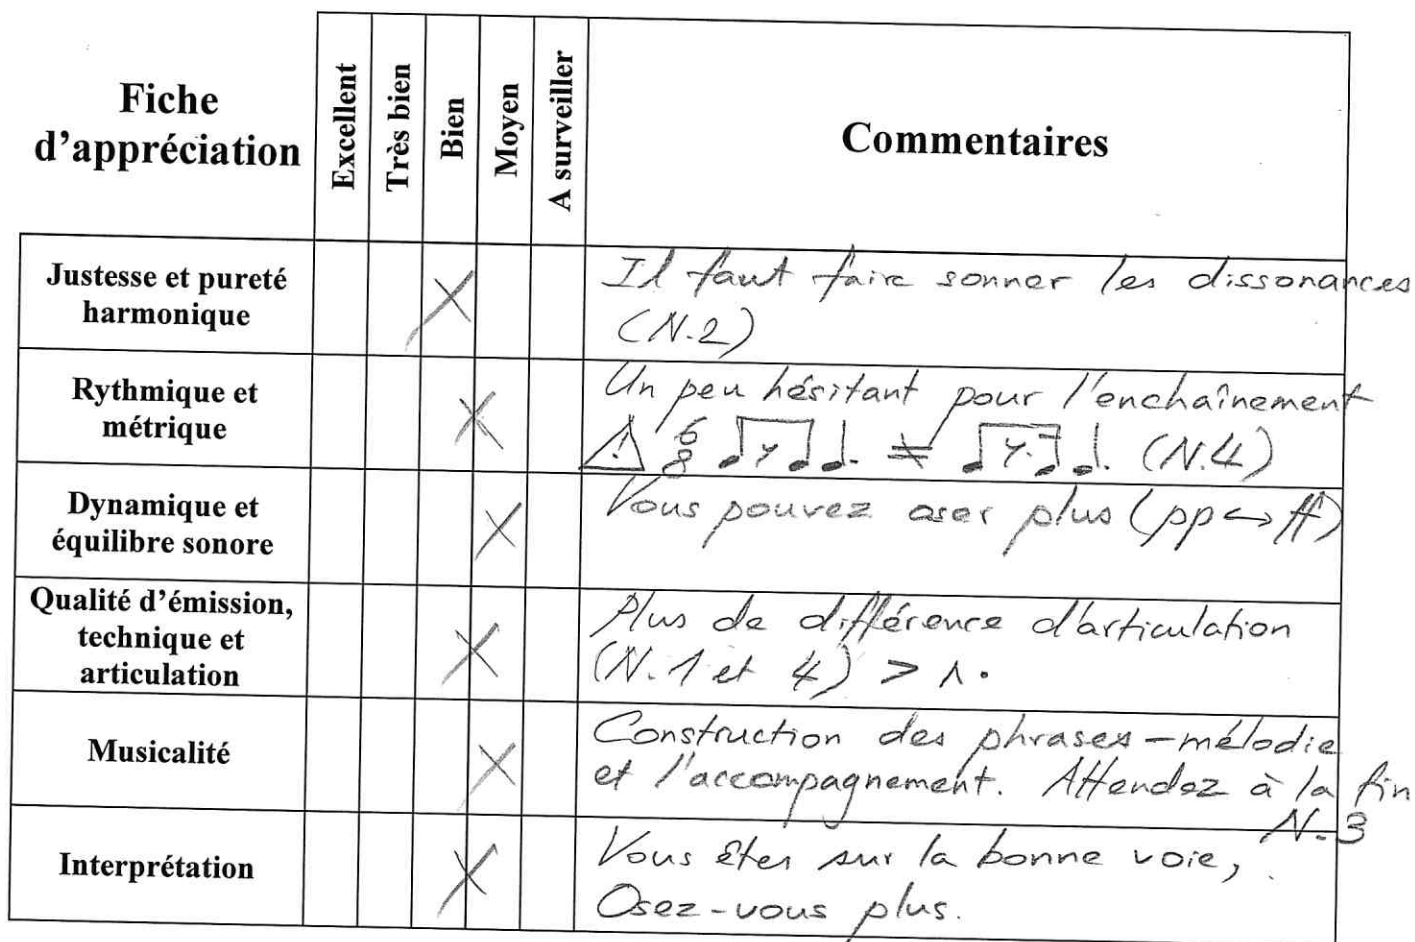 Fiche
d'appréciation
Excellent
Très bien
Bien
Moyen
A surveiller
Commentaires
Justesse et pureté
harmonique
Il faut faire sonner les dissonances
(N.2)
Rythmique et
métrique
Un peu hésitant pour l'enchaînement
6/8 ≠ (N.4)
Dynamique et
équilibre sonore
Vous pouvez oser plus (pp↔ff)
Qualité d'émission,
technique et
articulation
Plus de différence d'articulation
(N.1 et 4) > ʌ .
Musicalité
Construction des phrases - mélodie
et l'accompagnement. Attendez à la fin
N.3
Interprétation
Vous êtes sur la bonne voie,
Osez-vous plus.